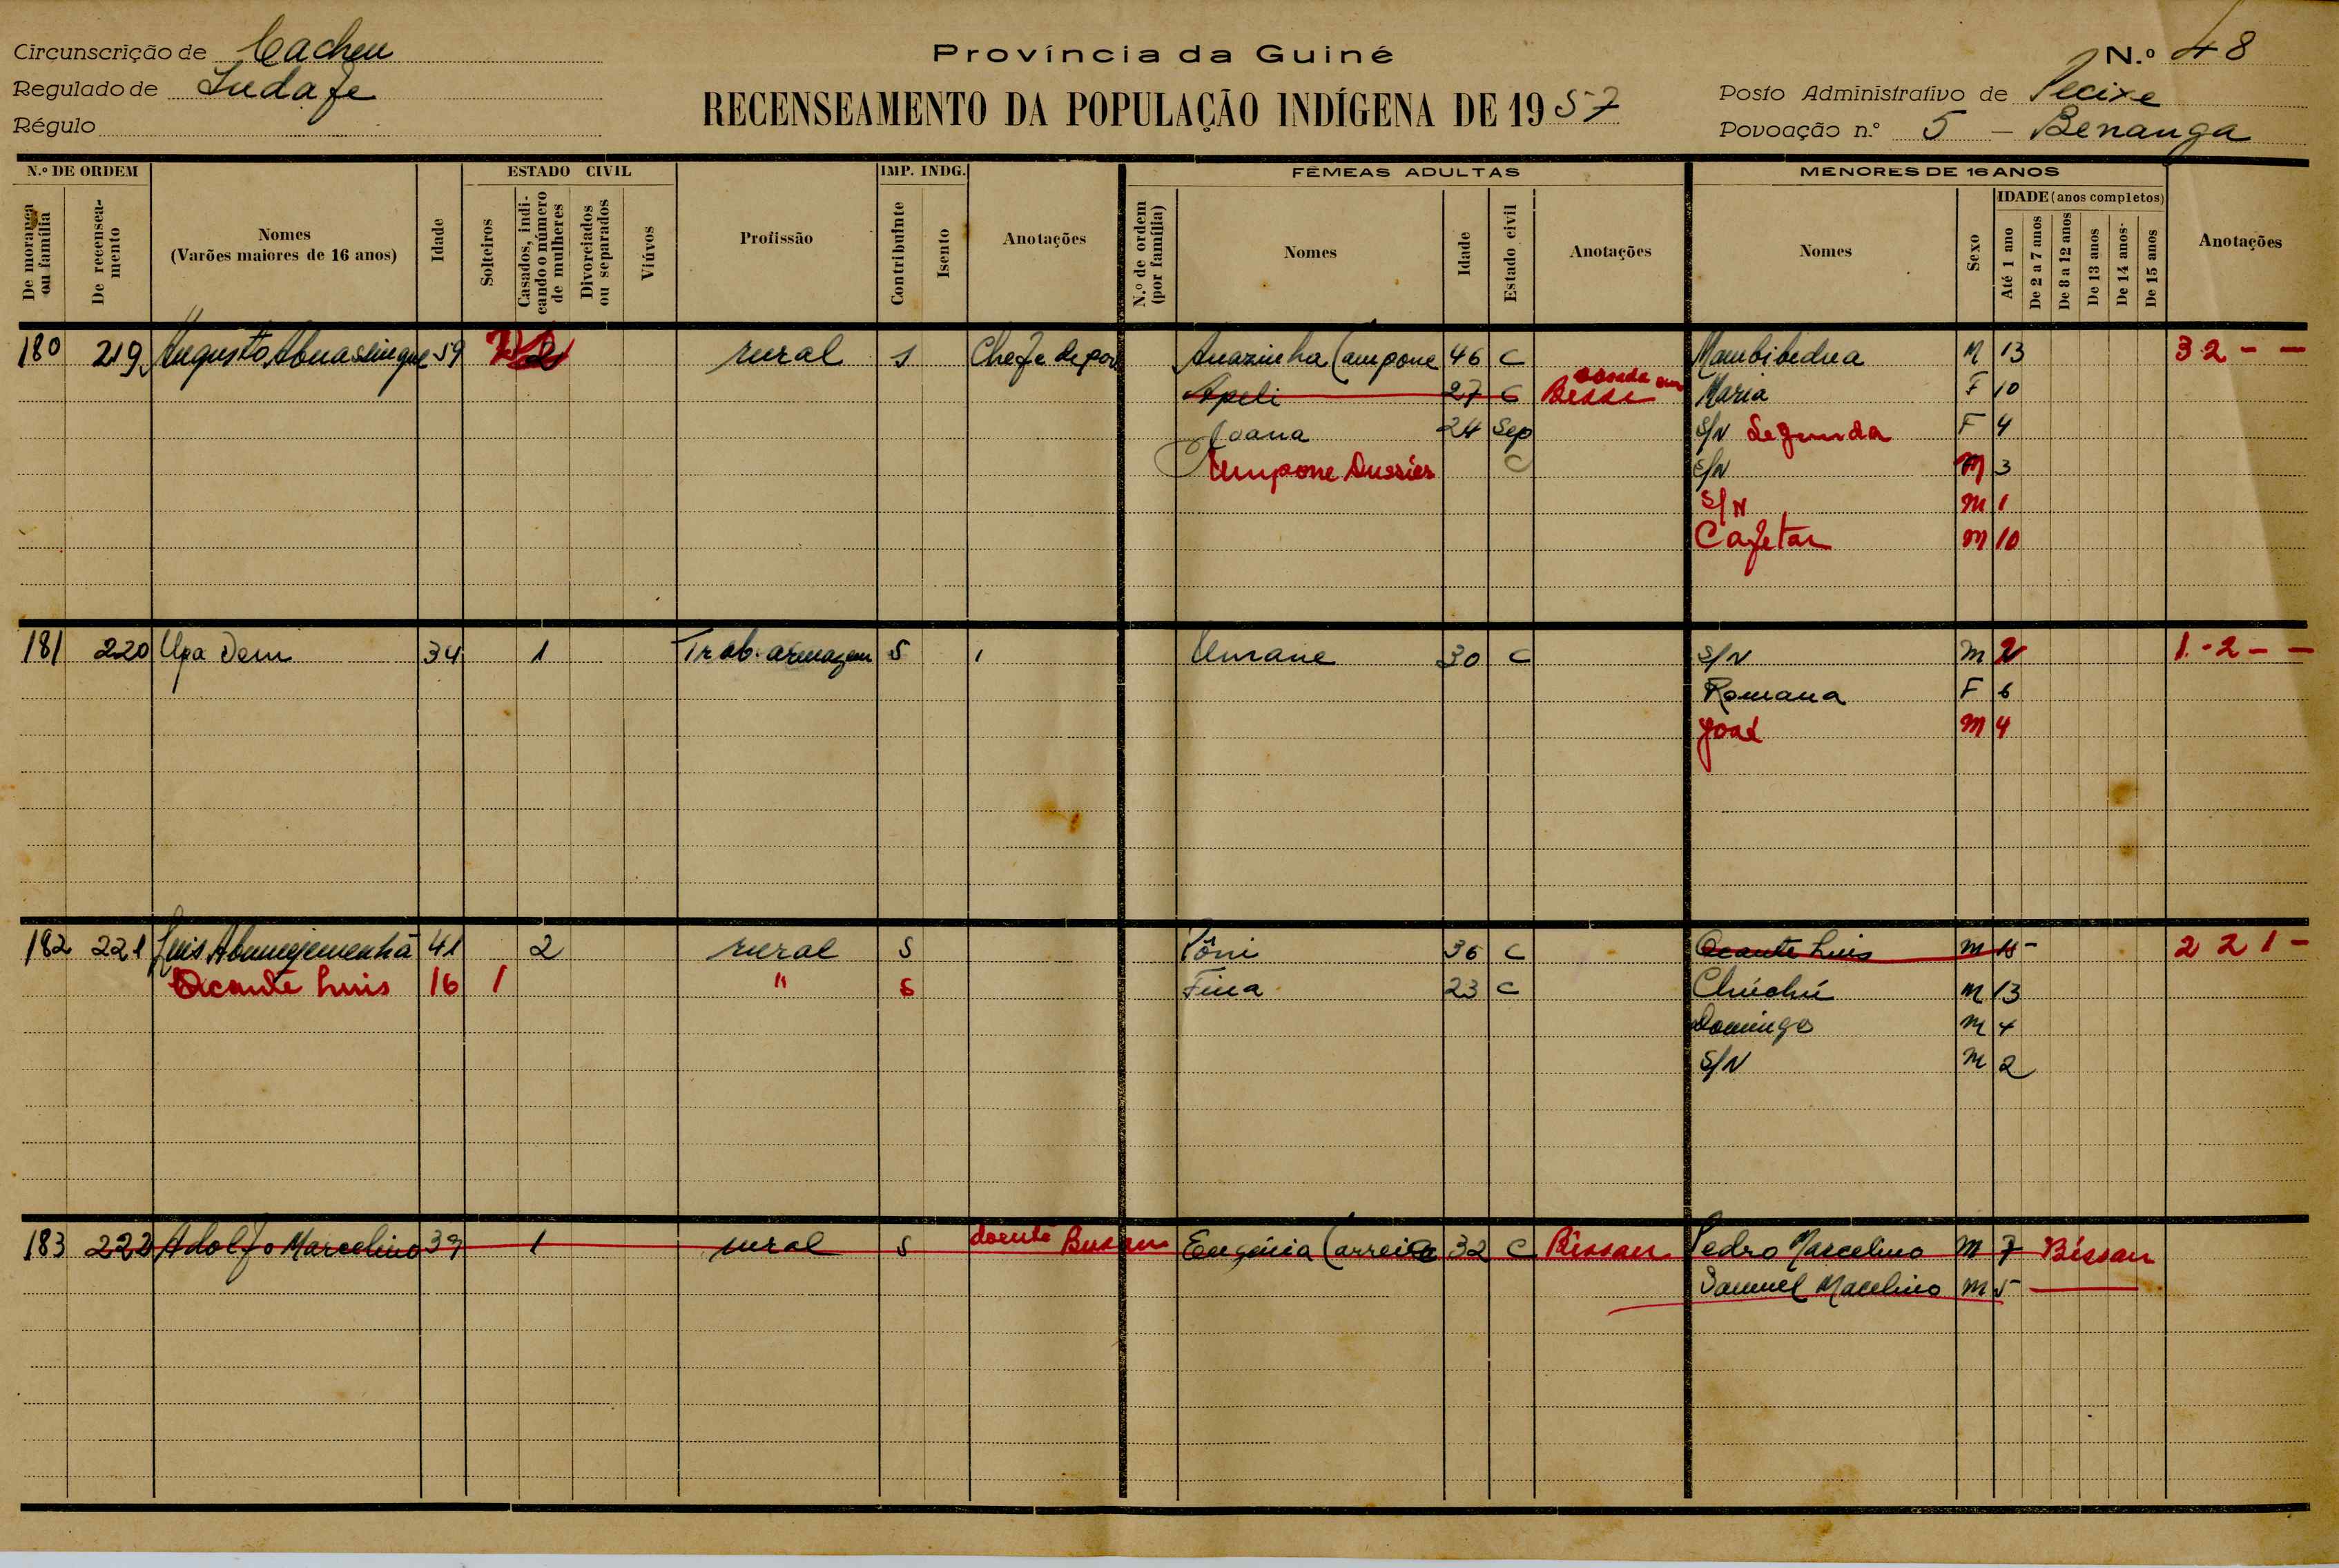 Circunscrição de Cacheu
Província da Guiné
N.º 48
Regulado de
RECENSEAMENTO DA POPULAÇÃO INDÍGENA DE 1957
Posto Administrativo de Pecixe
Régulo
Povoação n.º 5 - Benanga
N.º DE ORDEM
ESTADO CIVIL
IMP. INDG.
FÊMEAS ADULTAS
MENORES DE 16 ANOS
De morança ou família
De recenseamento
Nomes
(Varões maiores de 16 anos)
Idade
Solteiros
Casados, indicando o número de mulheres
Divorciados ou separados
Viúvos
Profissão
Contribuinte
Isento
Anotações
N.º de ordem (por família)
Nomes
Idade
Estado civil
Anotações
Nomes
Sexo
IDADE (anos completos)
Até 1 ano
De 2 a 7 anos
De 8 a 12 anos
De 13 anos
De 14 anos
De 15 anos
Anotações
180 219 Augusto 59 2 rural s Chefe de pov Anazinha Campone 46 C Mambibedna M 13 3 2 - -
Apeli 27 C casada em Maria F 10
Joana 24 Sep S/N Segunda F 4
Umpone C S/N M 3
S/N M 1
Cafetar M 10
181 220 Upa Dem 34 1 Trab. armazem S Umrane 30 C S/N M 2 1 - 2 - -
Romana F 6
José M 4
182 221 Luis 41 2 rural S Pôni 36 C Ocante Luis M 15 - 2 2 1 -
Ocante Luis 16 1 " S Fina 23 C Chúchú M 13
Domingo M 4
S/N M 2
183 222 Adolfo Marcelino 39 1 rural S doente Bissau Eugénia Carreira 32 C Bissau Pedro Marcelino M 7 Bissau
Samuel Macelino M 5